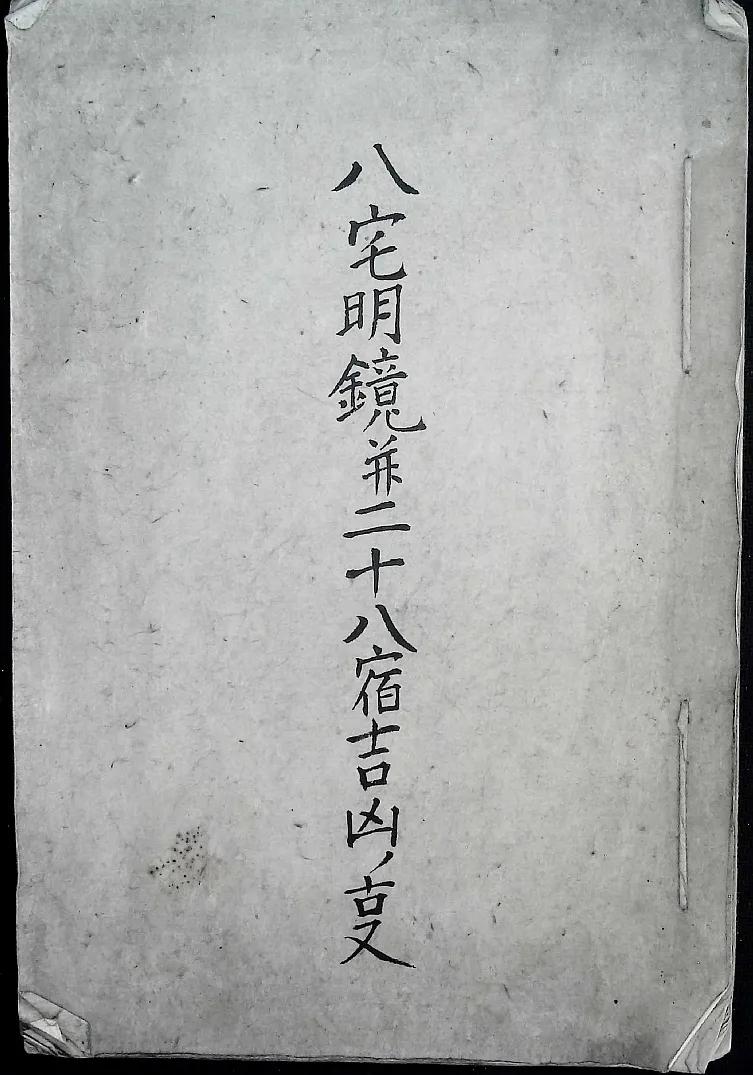 八宅明鏡并二十八宿吉凶ノ㕝